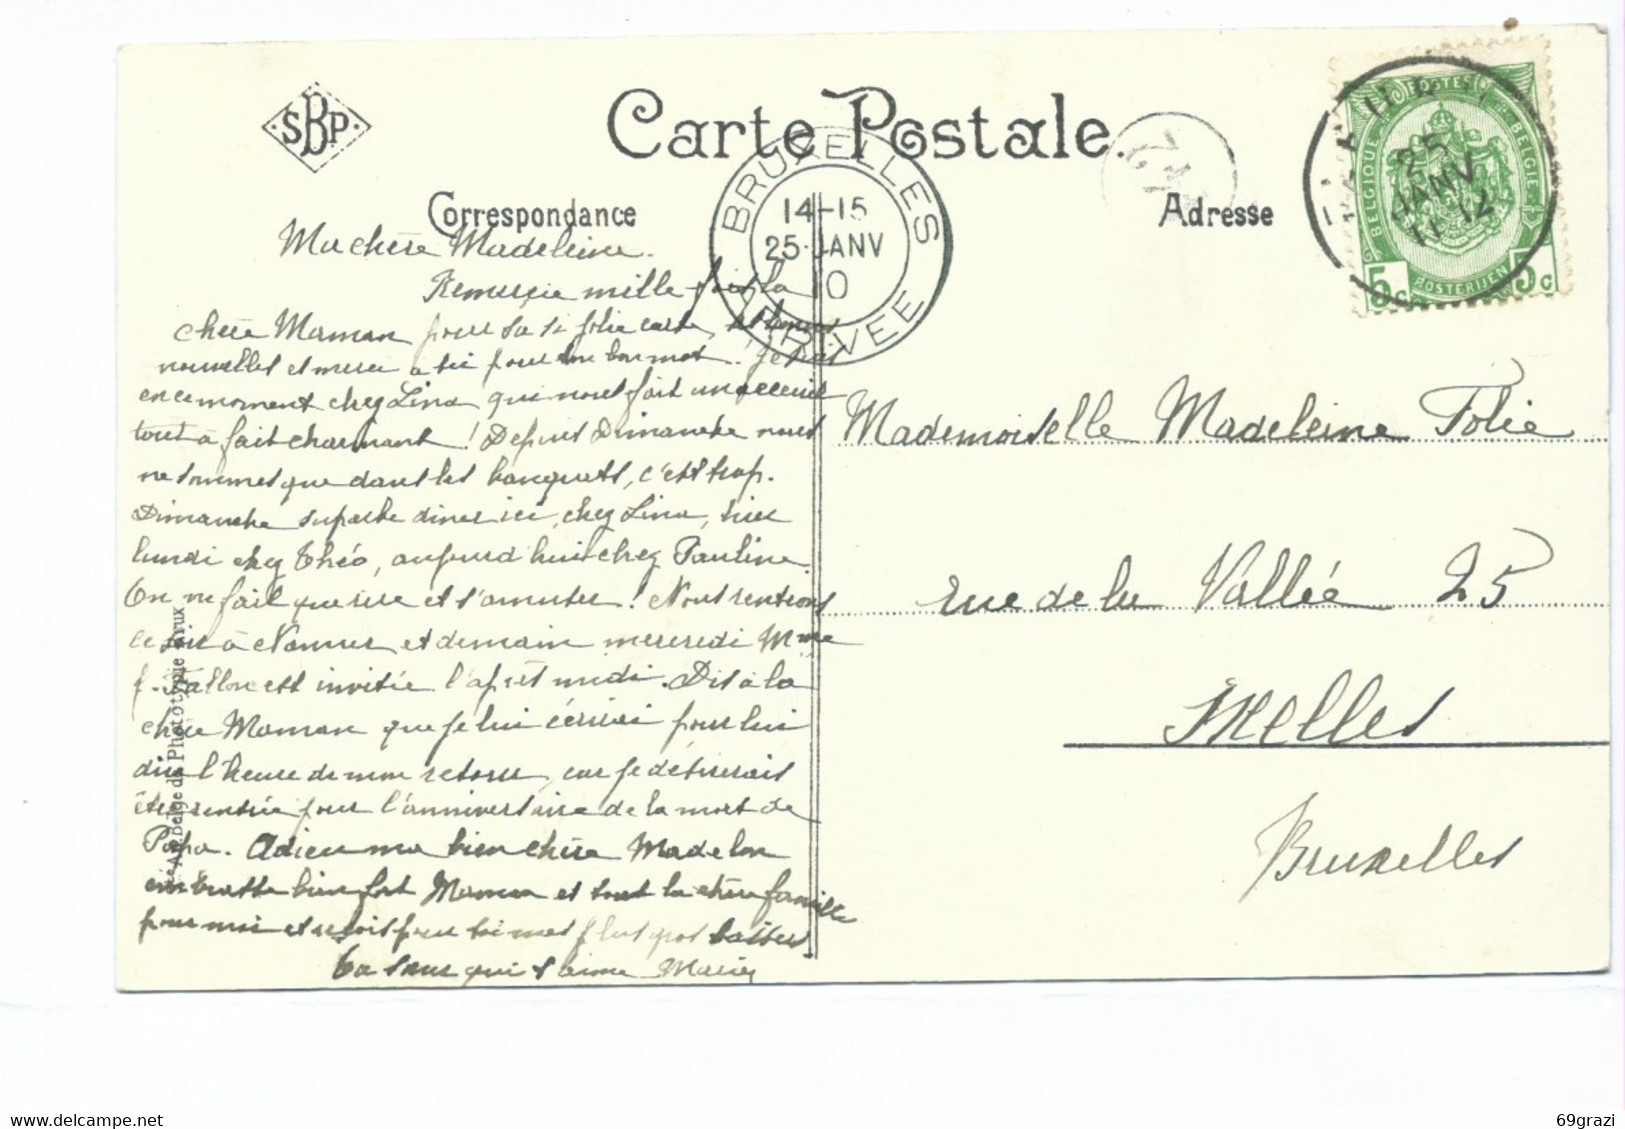 SBP
Carte Postale.
Correspondance
Adresse
BRUXELLES
14-15
25 JANV
10
ARRIVEE
25
JANV
11-12
POSTES
BELGIQUE
BELGIE
POSTERIJEN
5c 5c
Ma chère Madeleine.
Remercie mille fois la
chère Maman pour sa si jolie carte,
nouvelles et merci à toi pour ton bon mot. Je suis
en ce moment chez Lina qui nous fait un acceuil
tout à fait charmant! Depuis Dimanche nous
ne sommes que dans les banquets, c'est trop.
Dimanche superbe diner ici, chez Lina, hier
lundi chez Théo, aujourd'hui chez Pauline.
On ne fait que rire et s'amuser! Nous rentrons
ce soir à Namur et demain mercredi Mme
F. Fallon est invitée l'après midi. Dis à la
chère Maman que je lui écrirai pour lui
dire l'heure de mon retour, car je désirerais
être rentrée pour l'anniversaire de la mort de
Papa. Adieu ma bien chère Madelon
embrasse bien fort Maman et tout la chère famille
pour moi et reçois pour toi mes plus gros baisers
Ta sœur qui t'aime Maria
Mademoiselle Madeleine Folie
rue de la Vallée 25
Ixelles
Bruxelles
delcampe.net
69grazi